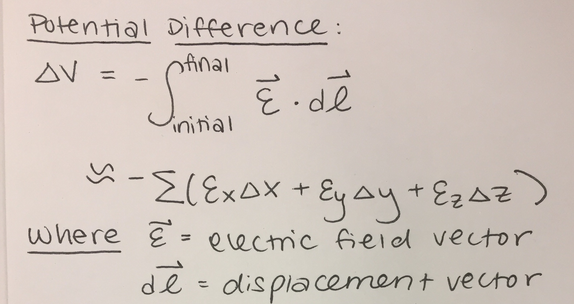 Potential Difference:
ΔV = - ∫initial^final ℰ⃗ · dℓ⃗
≈ - Σ(ℰxΔx + ℰyΔy + ℰzΔz)
where ℰ⃗ = electric field vector
dℓ⃗ = displacement vector